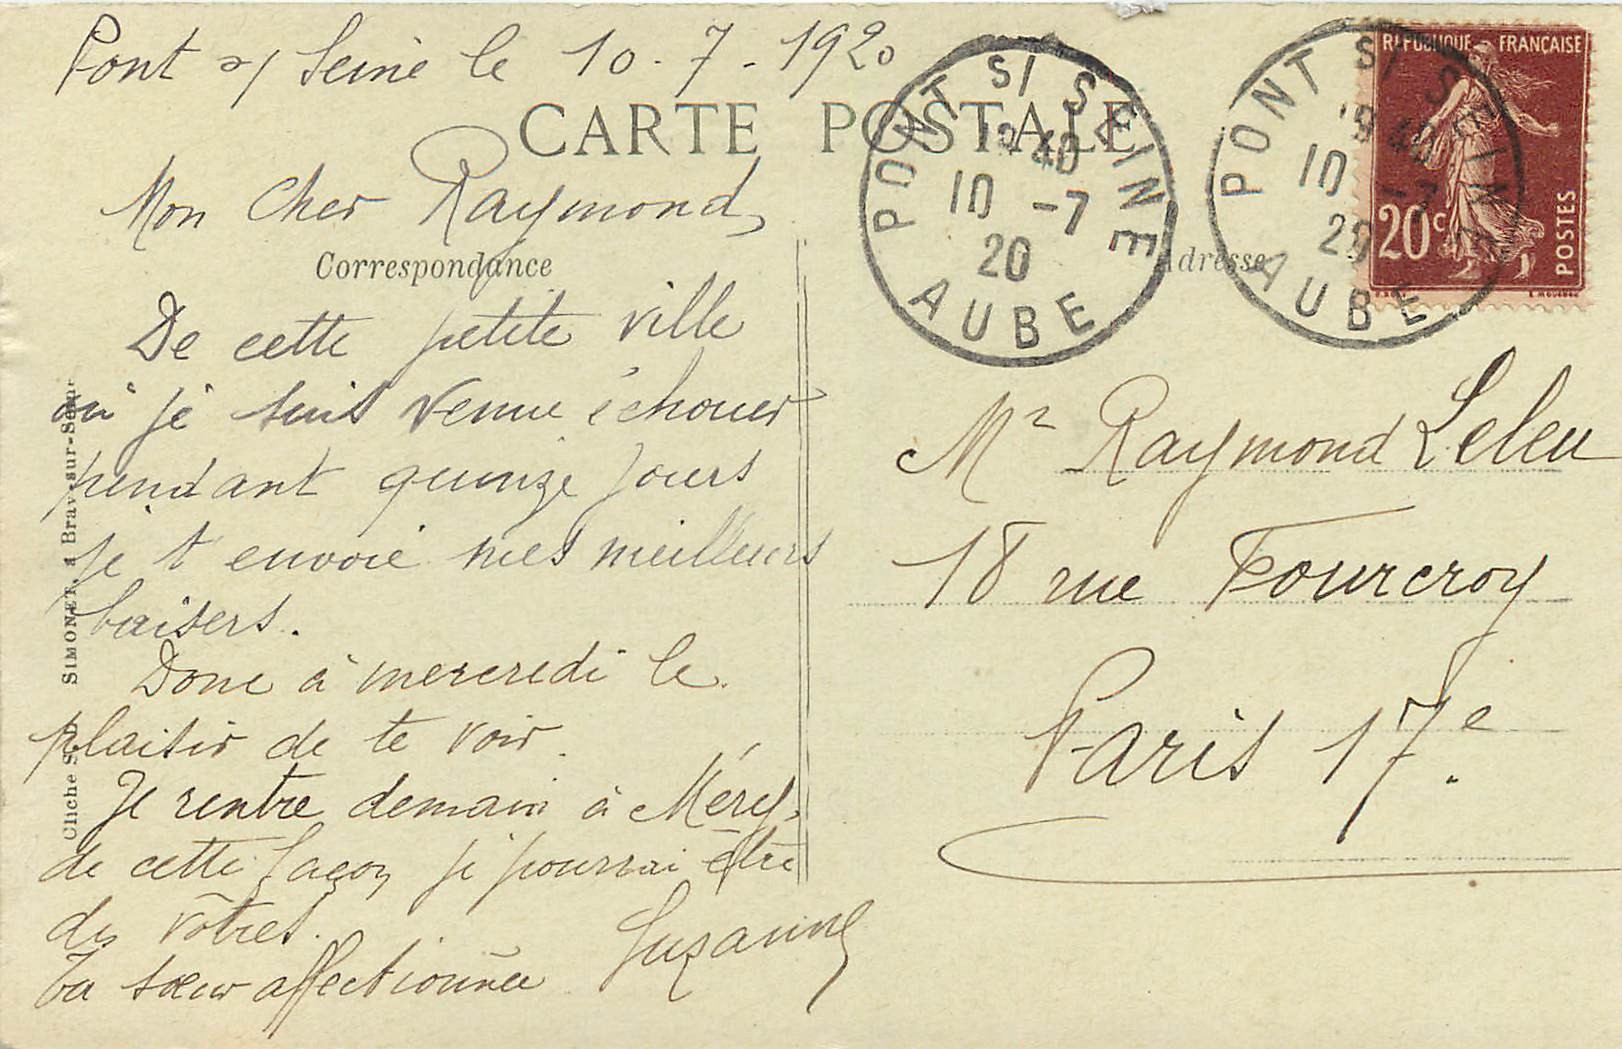 Pont s/ Seine le 10-7-1920
CARTE POSTALE
Mon Cher Raymond,
Correspondance
De cette petite ville
où je suis venue échouer
pendant quinze jours
je t'envoie mes meilleurs
baisers.
Donc à mercredi le
plaisir de te voir.
Je rentre demain à Méry,
de cette façon je pourrai être
des vôtres.
Ta sœur affectionnée
Suzanne
SIMONET, à Bray-sur-Seine
Cliché
PONT S/ SEINE
40
10 -7
20
AUBE
PONT S/ SEINE
40
10 -7
20
AUBE
REPUBLIQUE FRANÇAISE
20c
POSTES
Adresse
Mr Raymond Leleu
18 rue Fourcroy
Paris 17e.